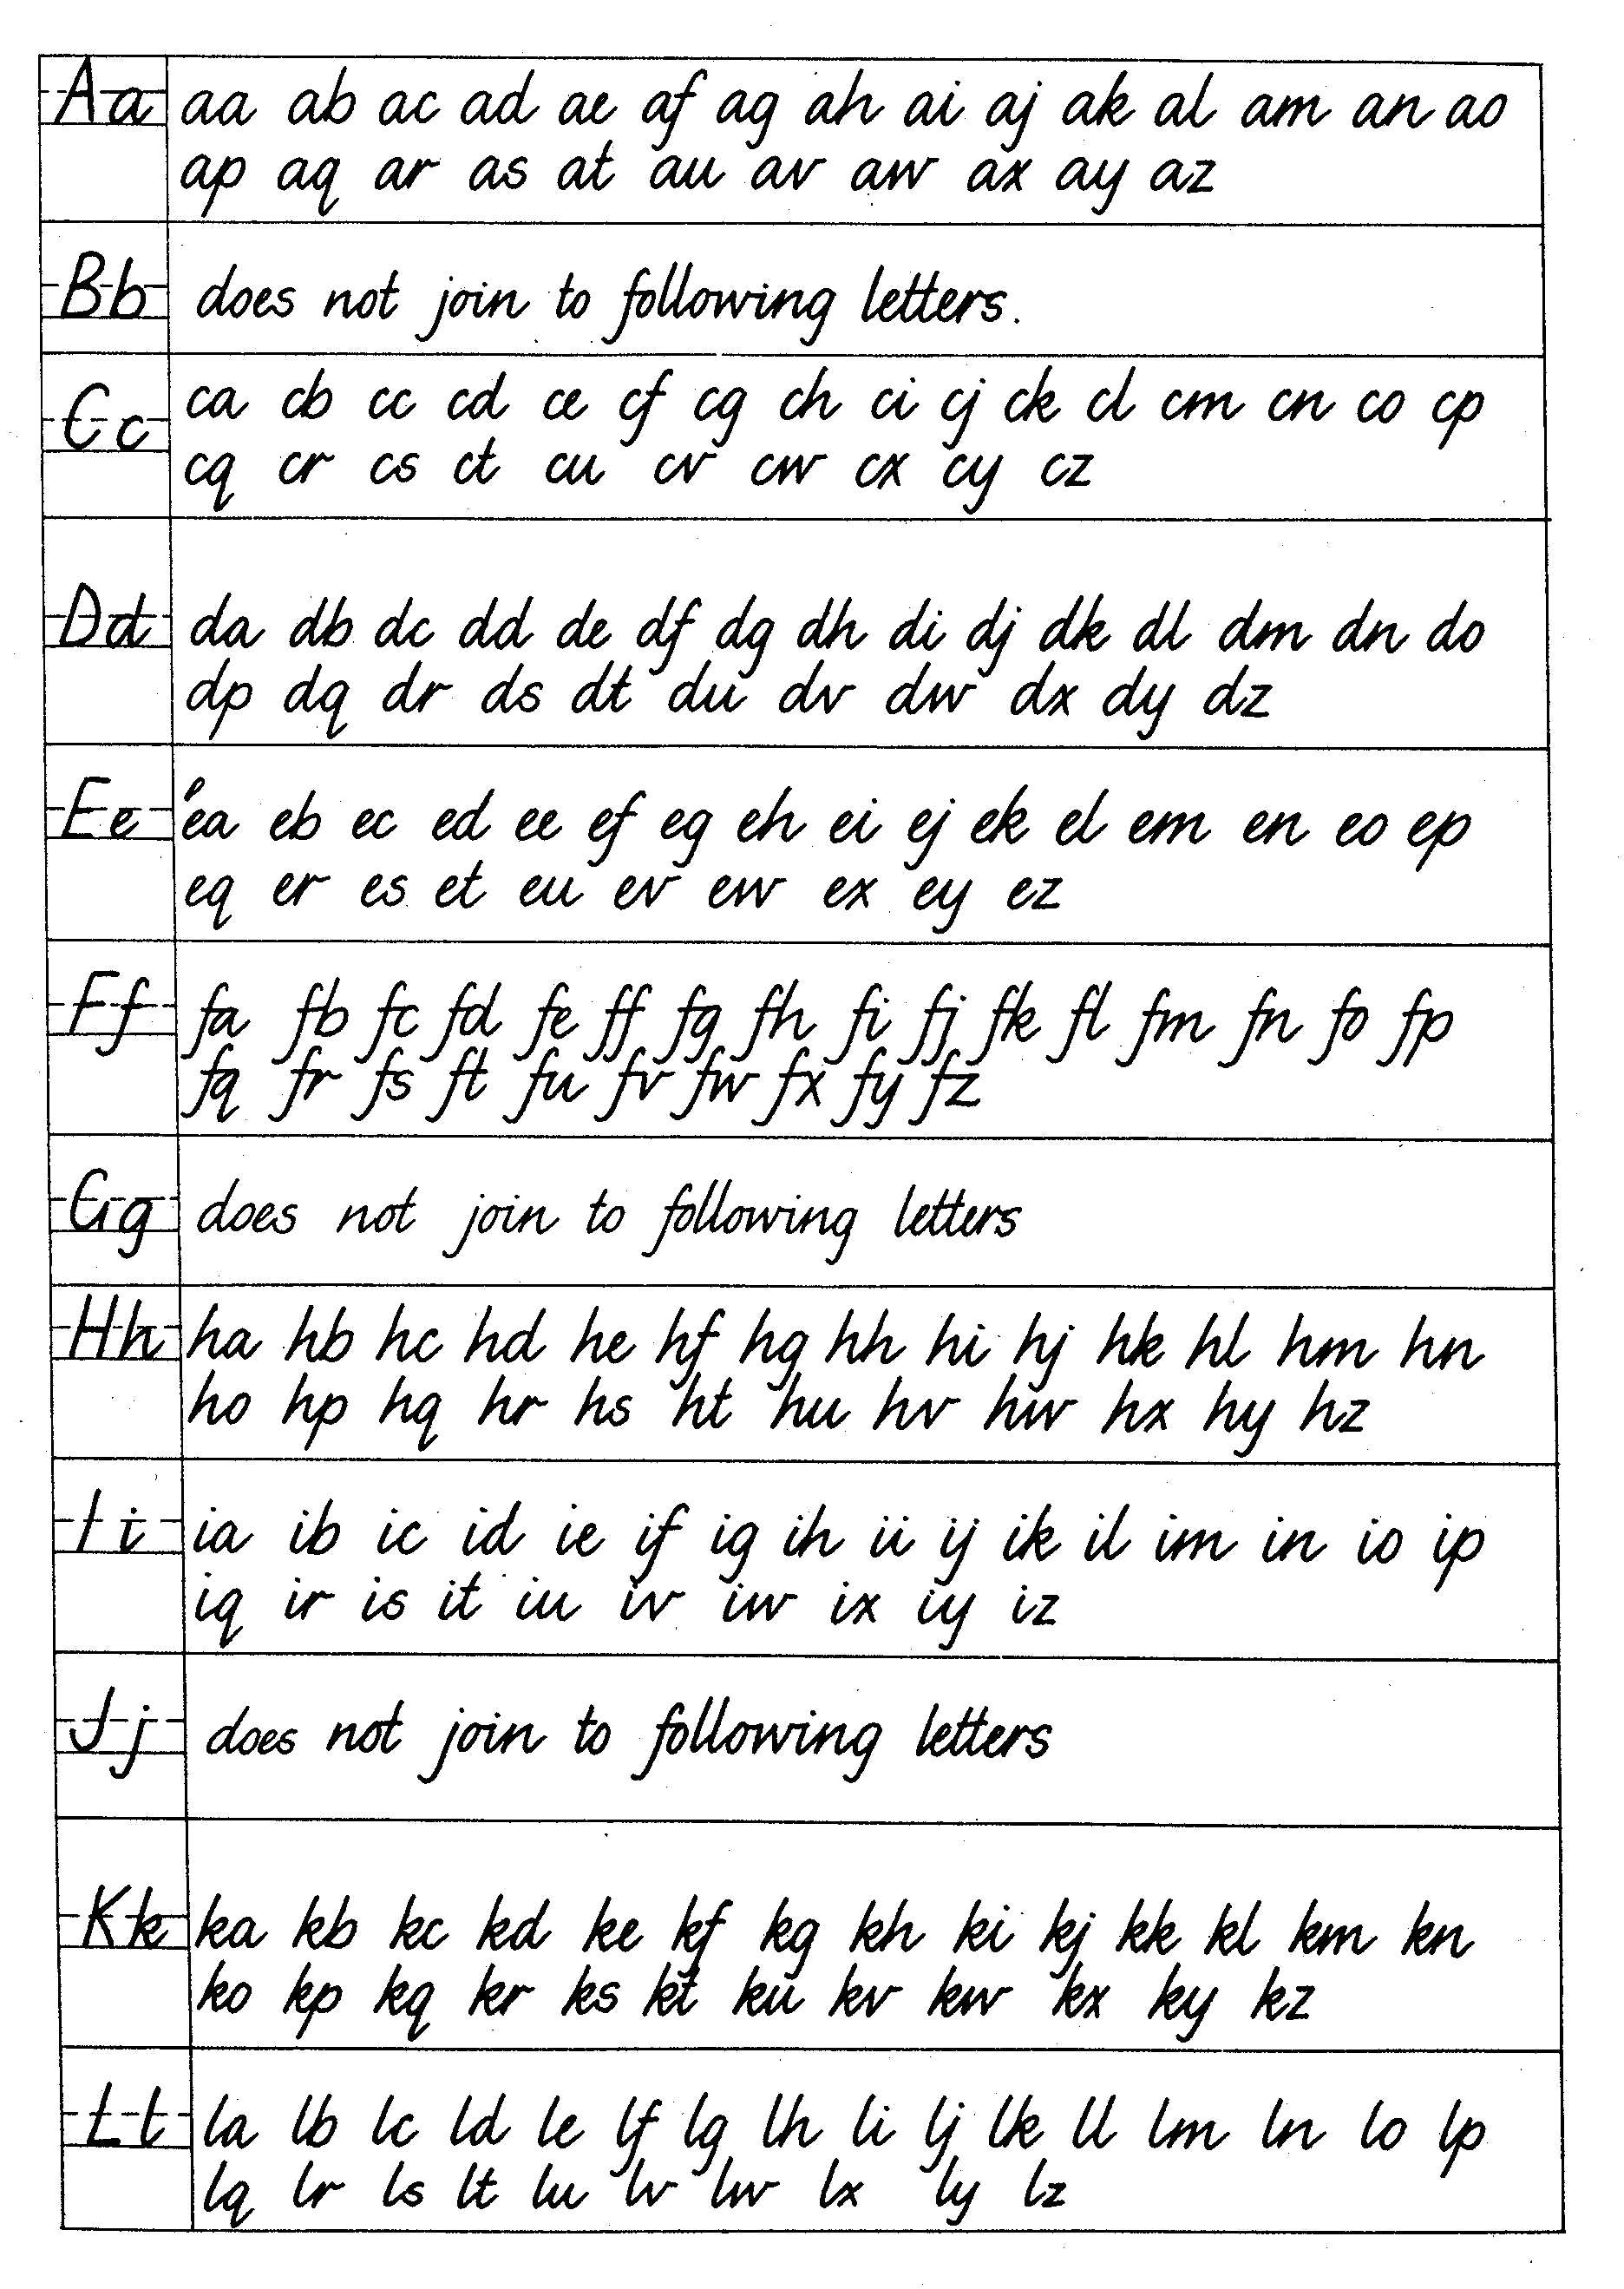 Aa aa ab ac ad ae af ag ah ai aj ak al am an ao
ap aq ar as at au av aw ax ay az
Bb does not join to following letters.
Cc ca cb cc cd ce cf cg ch ci cj ck cl cm cn co cp
cq cr cs ct cu cv cw cx cy cz
Dd da db dc dd de df dg dh di dj dk dl dm dn do
dp dq dr ds dt du dv dw dx dy dz
Ee ea eb ec ed ee ef eg eh ei ej ek el em en eo ep
eq er es et eu ev ew ex ey ez
Ff fa fb fc fd fe ff fg fh fi fj fk fl fm fn fo fp
fq fr fs ft fu fv fw fx fy fz
Gg does not join to following letters
Hh ha hb hc hd he hf hg hh hi hj hk hl hm hn
ho hp hq hr hs ht hu hv hw hx hy hz
Ii ia ib ic id ie if ig ih ii ij ik il im in io ip
iq ir is it iu iv iw ix iy iz
Jj does not join to following letters
Kk ka kb kc kd ke kf kg kh ki kj kk kl km kn
ko kp kq kr ks kt ku kv kw kx ky kz
Ll la lb lc ld le lf lg lh li lj lk ll lm ln lo lp
lq lr ls lt lu lv lw lx ly lz